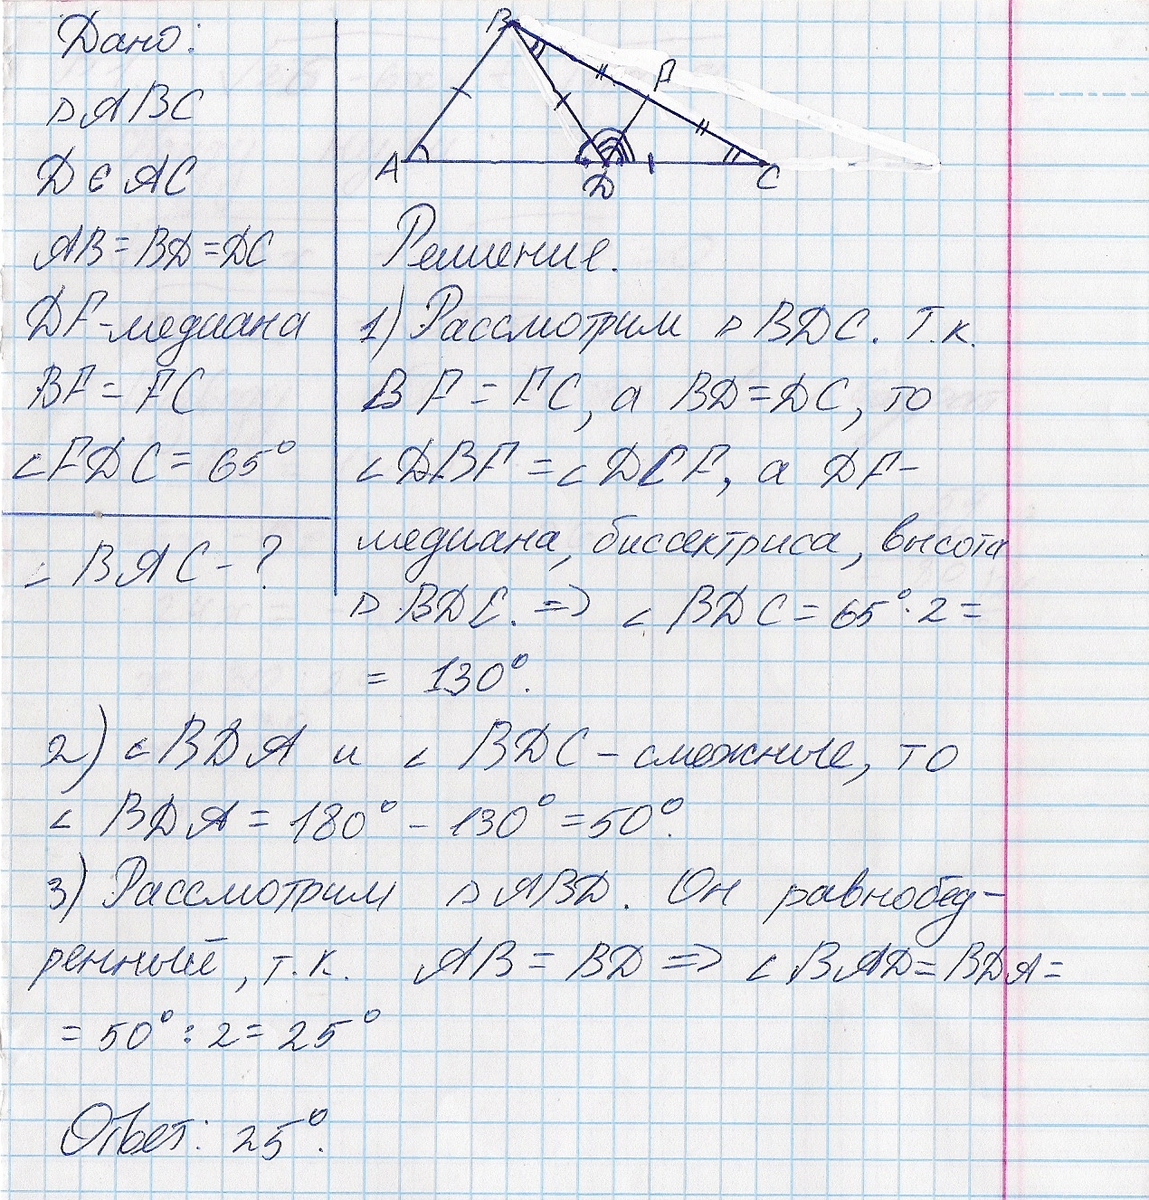 Дано:
△ABC
D ∈ AC
AB = BD = DC
DF - медиана
BF = FC
∠FDC = 65°
∠BAC - ?
B
F
A
D
C
Решение.
1) Рассмотрим △BDC. Т.к.
BF = FC, а BD = DC, то
∠DBF = ∠DCF, а DF -
медиана, биссектриса, высота
△BDC. => ∠BDC = 65° · 2 =
= 130°.
2) ∠BDA и ∠BDC - смежные, то
∠BDA = 180° - 130° = 50°.
3) Рассмотрим △ABD. Он равнобед-
ренный, т.к. AB = BD => ∠BAD = BDA =
= 50° : 2 = 25°
Ответ: 25°.